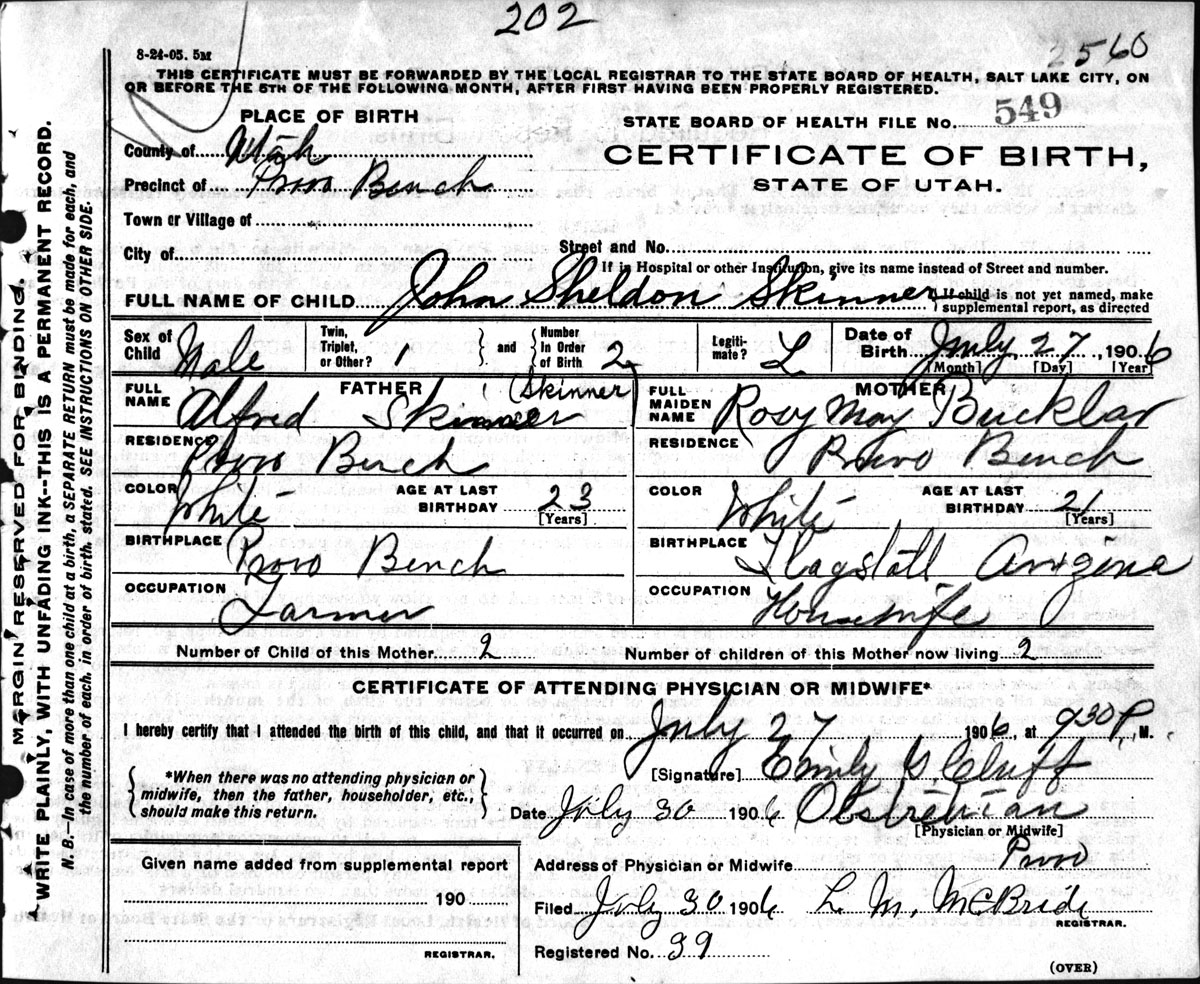 202
2560
8-24-05. 5M
THIS CERTIFICATE MUST BE FORWARDED BY THE LOCAL REGISTRAR TO THE STATE BOARD OF HEALTH, SALT LAKE CITY, ON
OR BEFORE THE 5TH OF THE FOLLOWING MONTH, AFTER FIRST HAVING BEEN PROPERLY REGISTERED.
PLACE OF BIRTH
STATE BOARD OF HEALTH FILE No. 549
County of Utah
CERTIFICATE OF BIRTH,
Precinct of Provo Bench
STATE OF UTAH.
Town or Village of
City of
Street and No.
If in Hospital or other Institution, give its name instead of Street and number.
FULL NAME OF CHILD John Sheldon Skinner
If child is not yet named, make
supplemental report, as directed
Sex of Child Male
Twin, Triplet, or Other? 1
and
Number In Order of Birth 2
Legitimate? L
Date of Birth July 27, 1906
[Month] [Day] [Year]
FATHER
FULL NAME Alfred Skinner (Skinner)
MOTHER
FULL MAIDEN NAME Rosy May Bucklar
RESIDENCE Provo Bench
RESIDENCE Provo Bench
COLOR White
AGE AT LAST BIRTHDAY 23
[Years]
COLOR White
AGE AT LAST BIRTHDAY 21
[Years]
BIRTHPLACE Provo Bench
BIRTHPLACE Flagstatt Arizena
OCCUPATION Farmer
OCCUPATION Housewife
Number of Child of this Mother 2
Number of children of this Mother now living 2
CERTIFICATE OF ATTENDING PHYSICIAN OR MIDWIFE*
I hereby certify that I attended the birth of this child, and that it occurred on July 27 1906, at 930 P. M.
*When there was no attending physician or
midwife, then the father, householder, etc.,
should make this return.
[Signature] Emily G. Cluff
Date July 30 1906 Obstretian
[Physician or Midwife]
Given name added from supplemental report
190
REGISTRAR.
Address of Physician or Midwife Provo
Filed July 30 1906 L. M. McBride
REGISTRAR.
Registered No. 39
(OVER)
MARGIN RESERVED FOR BINDING.
WRITE PLAINLY, WITH UNFADING INK--THIS IS A PERMANENT RECORD.
N. B. In case of more than one child at a birth, a SEPARATE RETURN must be made for each, and
the number of each, in order of birth, stated. SEE INSTRUCTIONS ON OTHER SIDE.